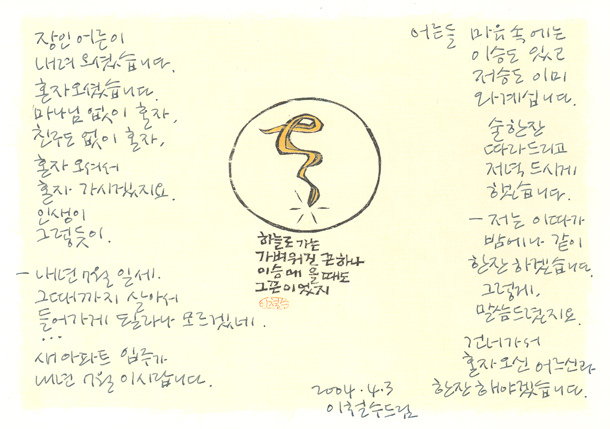 장인 어른이
내려 오셨습니다.
혼자 오셨습니다.
마나님 없이 혼자,
친구도 없이 혼자,
혼자 오셔서
혼자 가시겠지요.
인생이
그렇듯이.
- 내년 7월 일세.
그때까지 살아서
들어가게 될라나 모르겠네.
...
새 아파트 입주가
내년 7월 이시랍니다.
하늘로 가는
가벼워진 끈 하나
이승에 올 때도
그끈이었지
어른들 마음 속에는
이승도 있고
저승도 이미
와 계십니다.
술 한잔
따라드리고
저녁 드시게
했습니다.
- 저는 이따가
밤에나 같이
한잔 하겠습니다.
그렇게,
말씀드렸지요.
건너가서
혼자 오신 어르신과
한잔 해야겠습니다.
2004.4.3
이철수드림